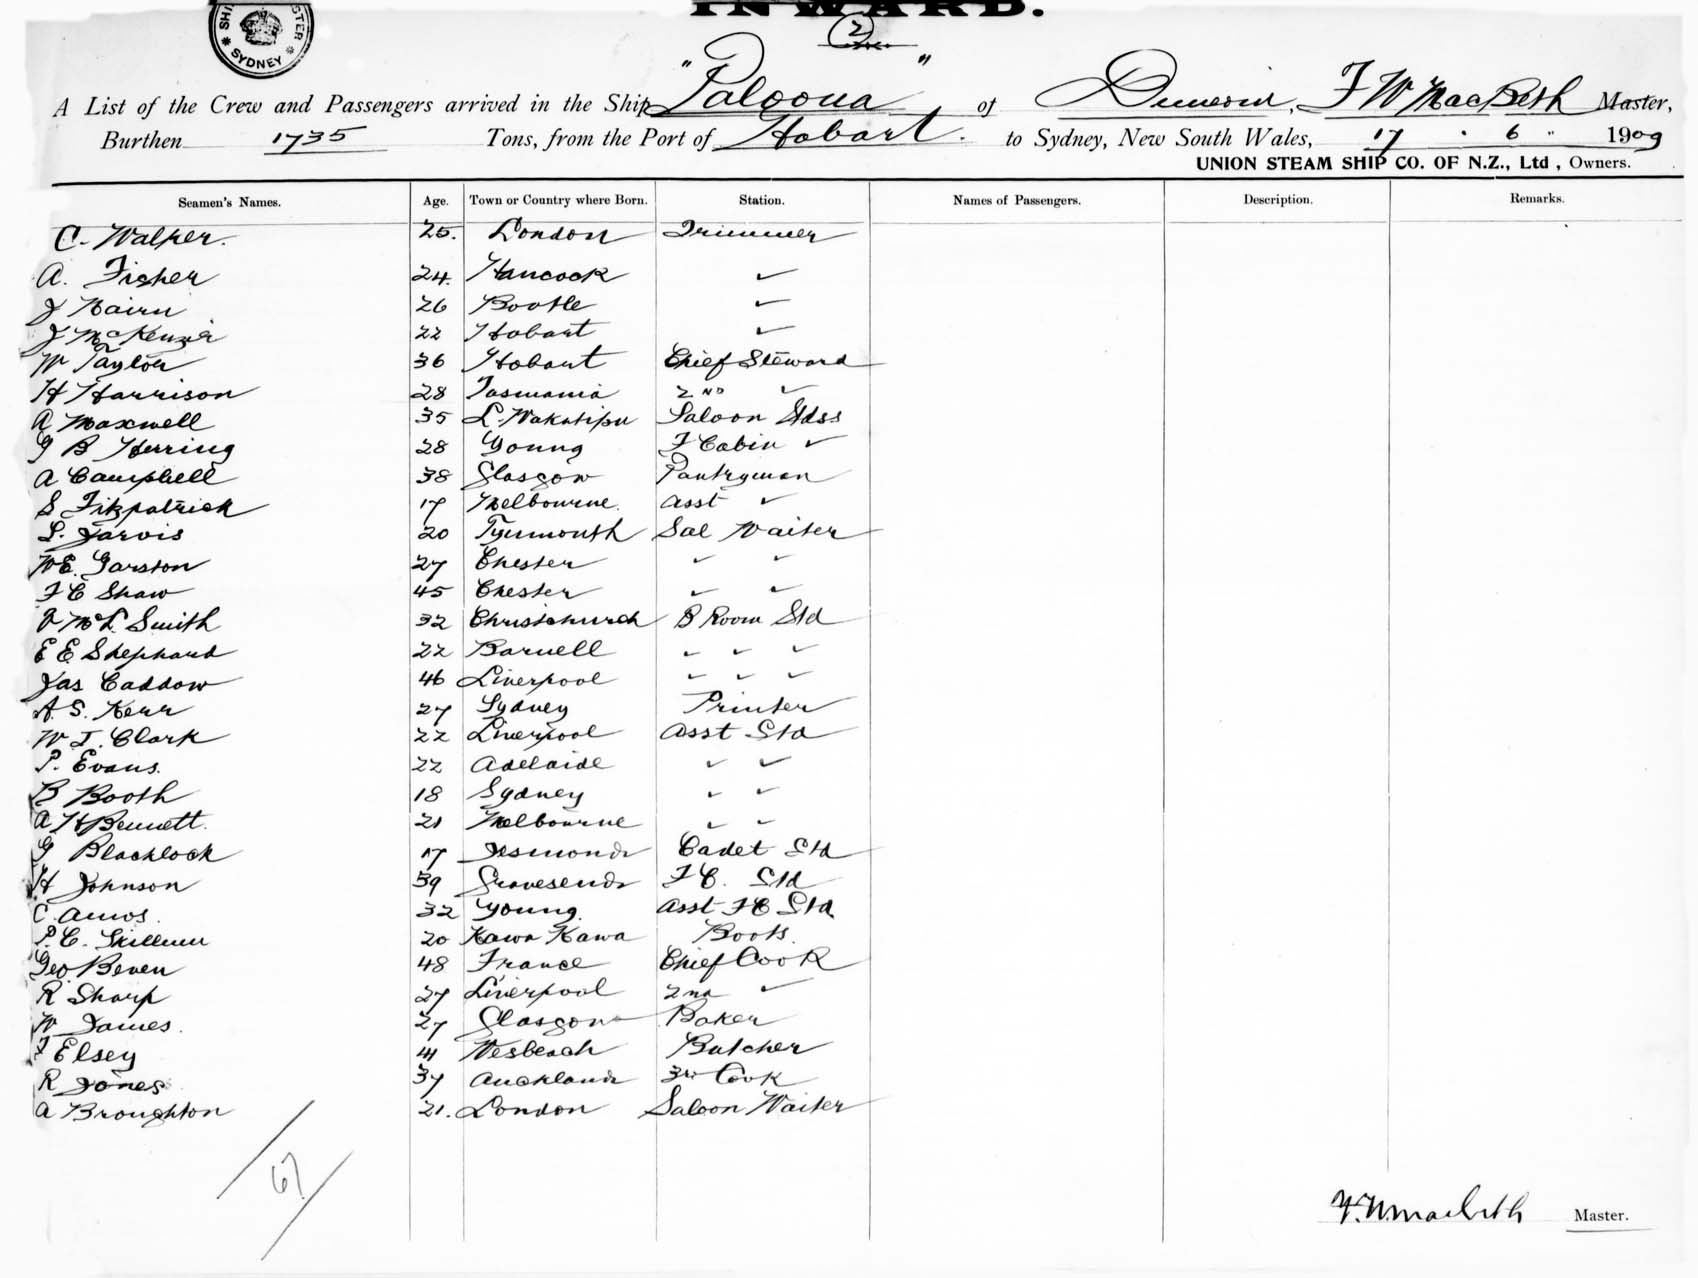 INWARD.
SYDNEY
2
A List of the Crew and Passengers arrived in the Ship "Paloona" of Dunedin, F W MacBeth Master,
Burthen 1735 Tons, from the Port of Hobart. to Sydney, New South Wales, 17 . 6 " 1909
UNION STEAM SHIP CO. OF N.Z., Ltd, Owners.
Seamen's Names. Age. Town or Country where Born. Station. Names of Passengers. Description. Remarks.
C. Walker. 25. London Trimmer
A. Fisher 24. Hancock ✓
J Nairn 26 Bootle ✓
J McKenzie 22 Hobart ✓
W Taylor 36 Hobart Chief Steward
H Harrison 28 Tasmania 2ND ✓
A Maxwell 35 L. Wakatipu Saloon Stdss
G B Herring 28 Young F Cabin ✓
A Campbell 38 Glasgow Pantryman
S Fitzpatrick 17 Melbourne. Asst ✓
L. Jarvis 20 Tynmouth Sal Waiter
WE. Garston 27 Chester ✓ ✓
F C Shaw 45 Chester ✓ ✓
McL. Smith 32 Christchurch B Room Std
E E Shephard 22 Barnell ✓ ✓ ✓
Jas Caddow 46 Liverpool ✓ ✓ ✓
A. S. Kerr 27 Sydney Printer
W. J. Clark 22 Liverpool Asst Std
P. Evans. 22 Adelaide ✓ ✓
B Booth 18 Sydney ✓ ✓
A H Bennett. 21 Melbourne ✓ ✓
G Blacklock 17 Jesmond Cadet Std
H Johnson 39 Gravesend F C. Std
C. Amos. 32 Young. Asst F C Std
P. C. Skillum 20 Kawa Kawa Boots.
Geo Beven 48 France Chief Cook
R Sharp 27 Liverpool 2nd ✓
W James. 27 Glasgow Baker
F Elsey 41 Wesbeach Butcher
R Jones 37 Auckland 3rd Cook
A Broughton 21. London Saloon Waiter
67
F. W. Macbeth Master.